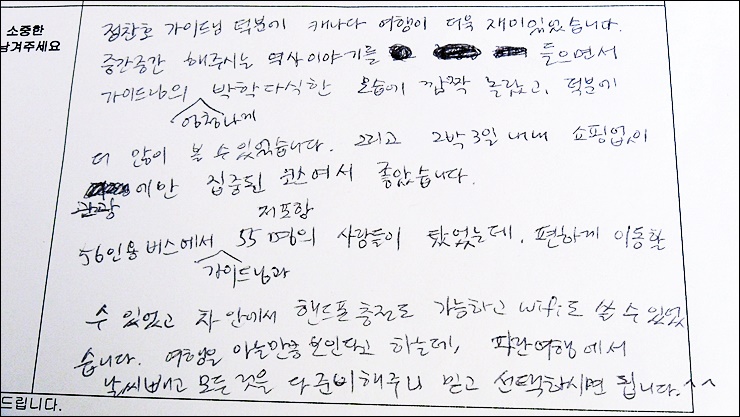 소중한
남겨주세요
정찬호 가이드님 덕분에 캐나다 여행이 더욱 재미있었습니다.
중간중간 해주시는 역사이야기를 들으면서
가이드님의 박학다식한 모습에 깜짝 놀랐고, 덕분에
엄청나게
더 많이 볼 수 있었습니다. 그리고 2박 3일 내내 쇼핑없이
에만 집중된 코스여서 좋았습니다.
관광
저포함
56인용 버스에서 55명의 사람들이 탔었는데, 편하게 이동할
가이드님과
수 있었고 차 안에서 핸드폰 충전도 가능하고 wifi도 쓸 수 있었
습니다. 여행을 아는만큼 보인다고 하는데, 파란여행에서
날씨빼고 모든 것을 다 준비해주니 믿고 선택하시면 됩니다.^^
드립니다.